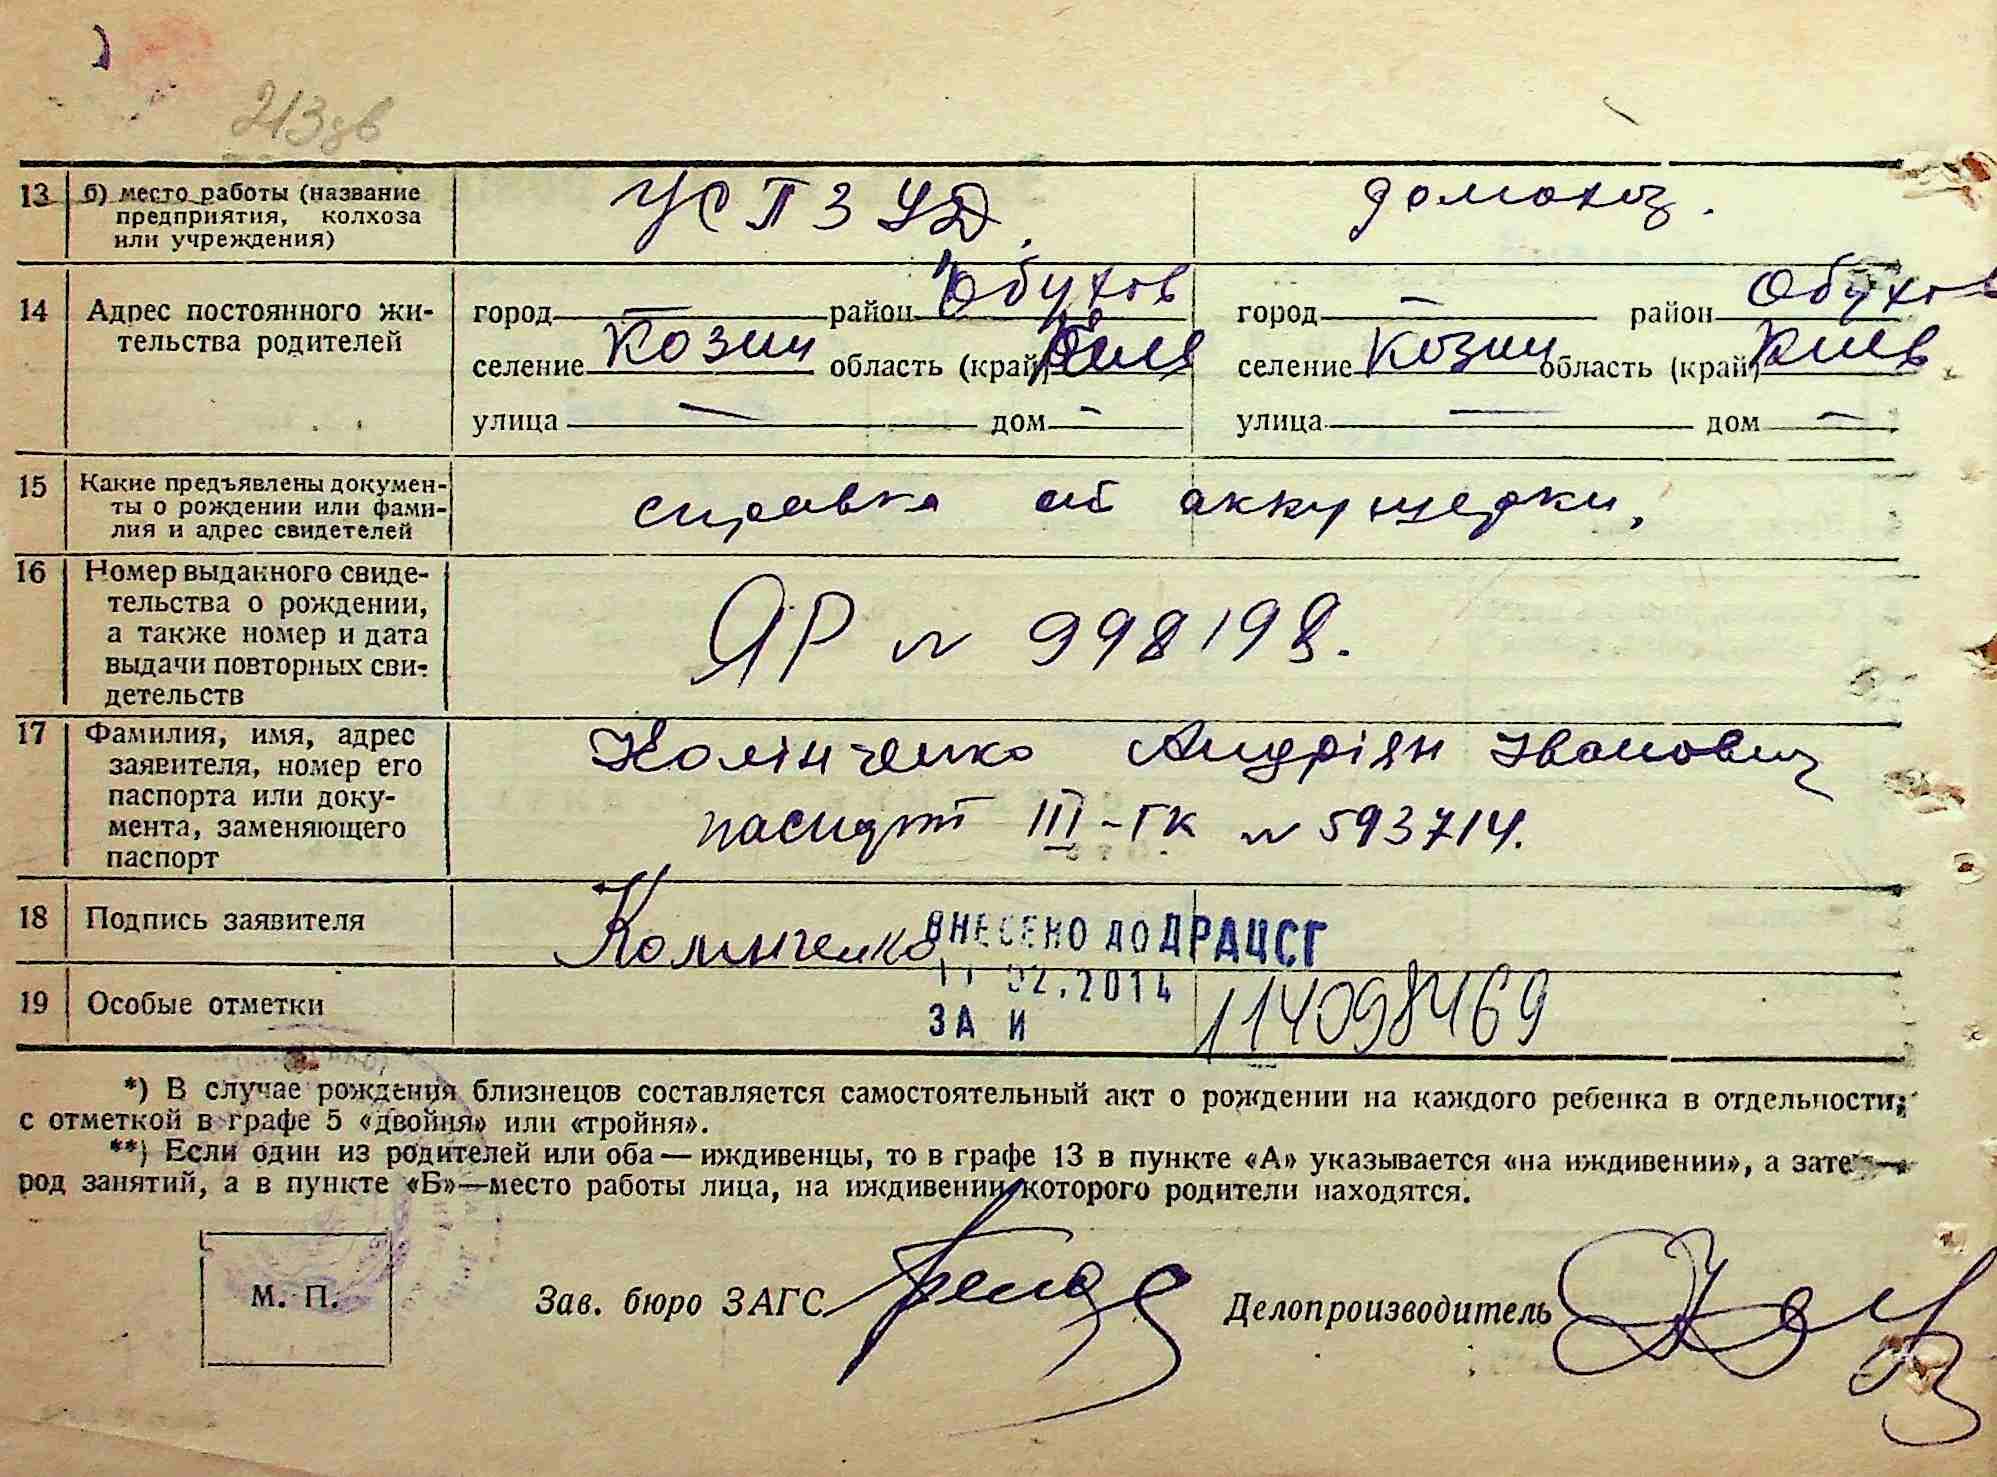 213зв
13 б) место работы (название УСПЗ домохоз.
предприятия, колхоза
или учреждения)
14 Адрес постоянного жи-
тельства родителей
город — район Обухов город — район Обухов
селение Козин область (край) Киев селение Козин область (край) Киев
улица — дом — улица — дом —
15 Какие предъявлены докумен-
ты о рождении или фами-
лия и адрес свидетелей
справка аккушерки,
16 Номер выданного свиде-
тельства о рождении,
а также номер и дата
выдачи повторных сви-
детельств
ЯР № 998198.
17 Фамилия, имя, адрес
заявителя, номер его
паспорта или доку-
мента, заменяющего
паспорт
Колінченко Андріян Іванович
паспорт III-ГК № 593714.
18 Подпись заявителя Колинченко
ВНЕСЕНО ДО ДРАЦСГ
02.2014
ЗА И 114098469
19 Особые отметки
*) В случае рождения близнецов составляется самостоятельный акт о рождении на каждого ребенка в отдельности;
с отметкой в графе 5 «двойня» или «тройня».
**) Если один из родителей или оба — иждивенцы, то в графе 13 в пункте «А» указывается «на иждивении», а зате
род занятий, а в пункте «Б»—место работы лица, на иждивении которого родители находятся.
М. П. Зав. бюро ЗАГС Делопроизводитель